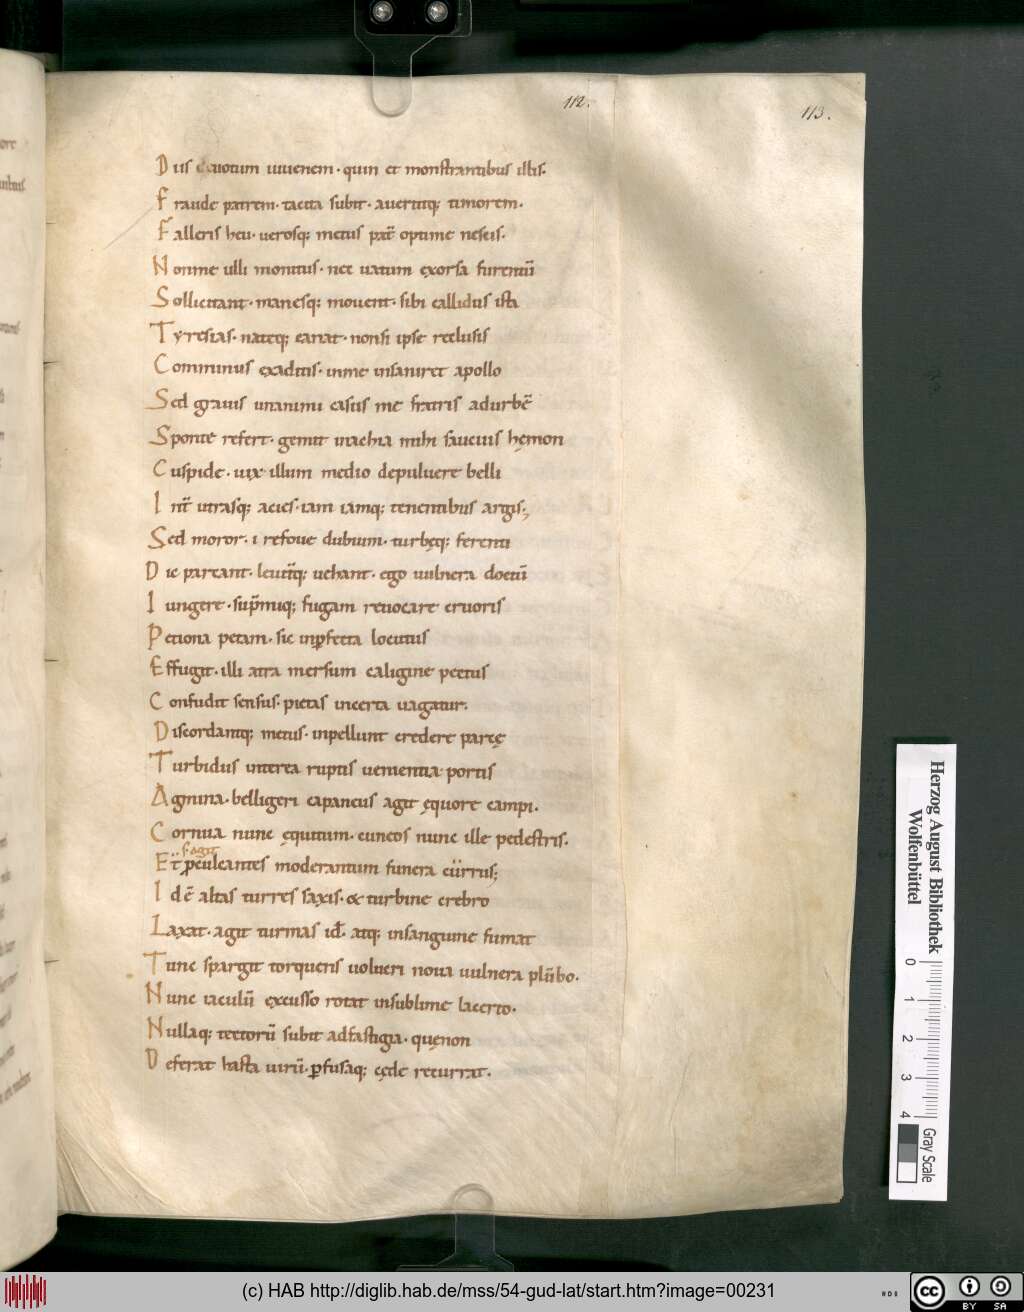 112.
113.
Dis deuotum iuuenem · quin et monstrantibus illis.
Fraude patrem · tacita subit · auertitq; timorem.
Falleris heu · uerosq; metus pat̄ optime nescis.
Nonme ulli monitus · nec uatum exorsa furentū
Sollicitant · manesq; mouent · sibi callidus ista
Tyresias · nateq; canat · nonsi ipse reclusis
Comminus exaditis · inme insaniret apollo
Sed grauis unanimi casus me fratris adurbē
Sponte refert · gemit inachia mihi saucius hęmon
Cuspide · uix illum medio depuluere belli
Int̄ utrasq; acies · iam iamq; tenentibus argis;
Sed moror · i refoue dubium · turbęq; ferenti
Dic parcant · leuit̄q; uehant · ego uulnera doctū
Iungere · sup̄mūq; fugam reuocare cruoris
Petiona petam · sic inꝑfecta locutus
Effugit · illi atra mersum caligine pectus
Confudit sensus · pietas incerta uagatur.
Discordantq; metus · inpellunt credere parcę
Turbidus interea ruptis uenientia portis
Agmina · belligeri capaneus agit ęquore campi.
Cornua nunc ęquitum · cuneos nunc ille pedestris.
Et ꝓculcantes moderantum funera currus;
Idē altas turres saxis · & turbine crebro
Laxat · agit turmas idē · atq; insanguine fumat
Tunc spargit torquens uolucri noua uulnera plūbo.
Nunc iaculū excusso rotat insublime lacerto.
Nullaq; tectorū subit adfastigia · quęnon
Deferat hasta uirū · ꝑfusaq; cęde recurrat.
Herzog August Bibliothek
Wolfenbüttel
0 1 2 3 4
Gray Scale
(c) HAB http://diglib.hab.de/mss/54-gud-lat/start.htm?image=00231
cc BY SA